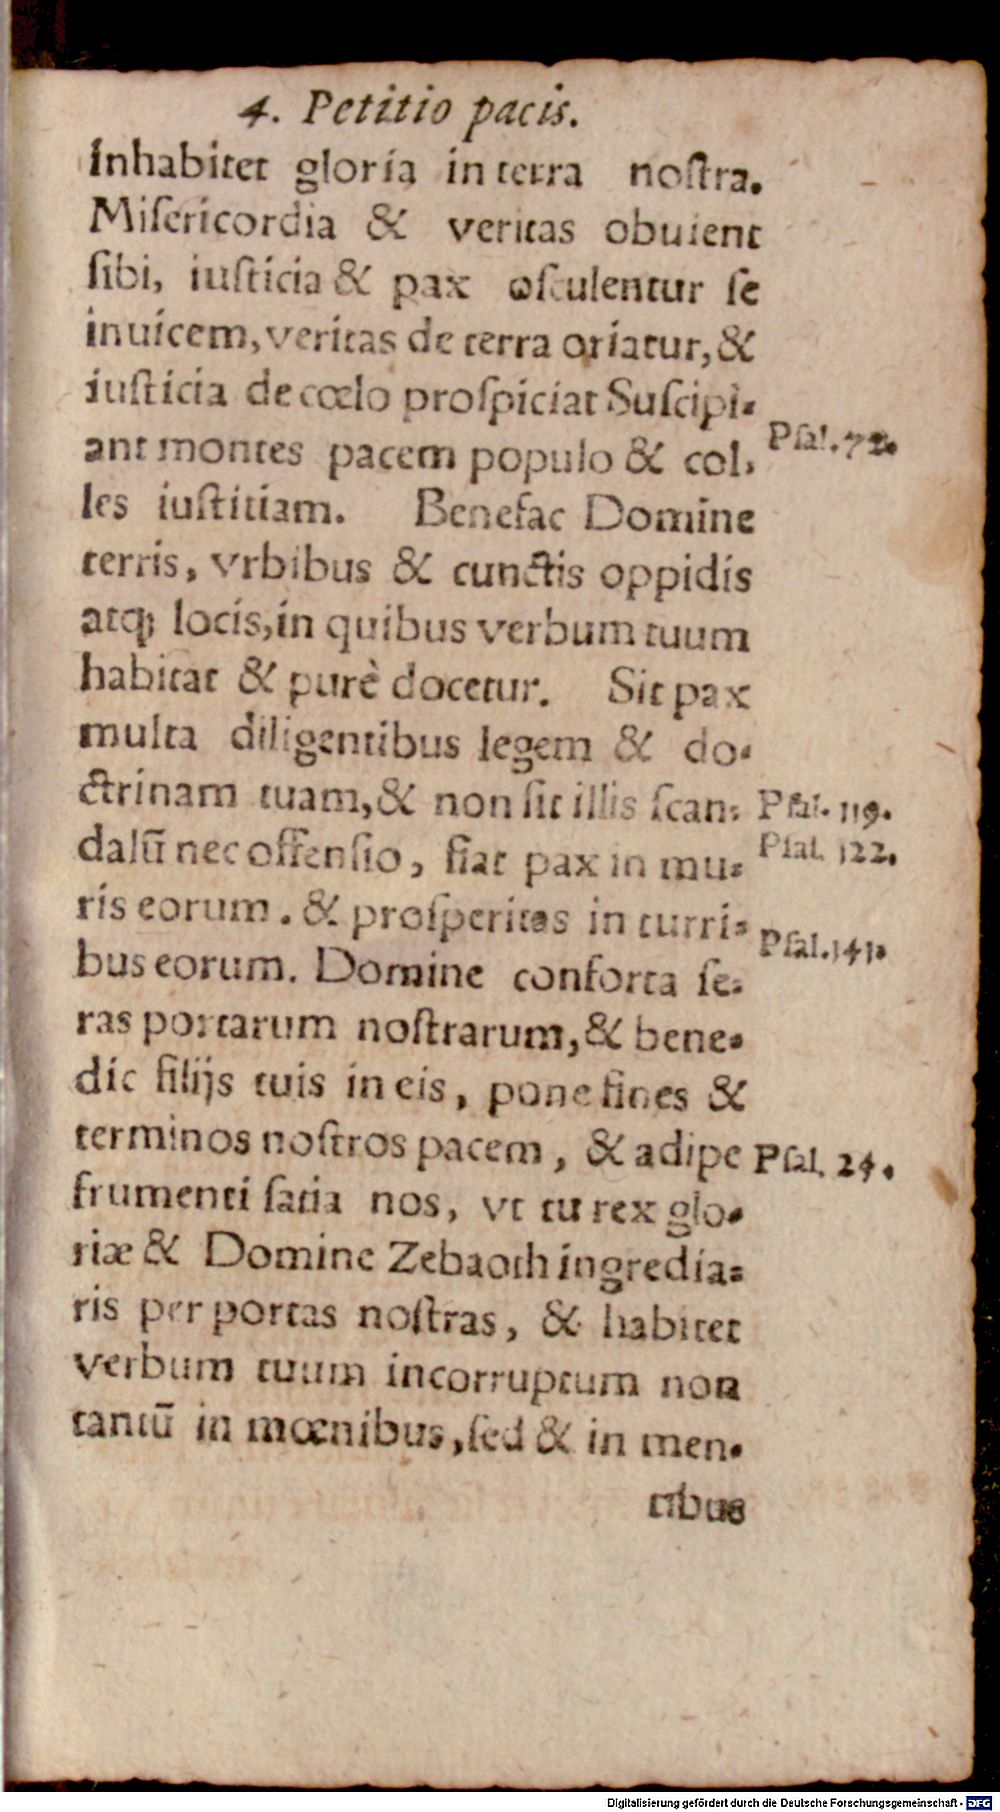 4. Petitio pacis.
inhabitet gloria in terra nostra.
Miſericordia & veritas obuient
ſibi, iuſticia & pax oſculentur ſe
inuicem, veritas de terra oriatur, &
iuſticia de cœlo proſpiciat Suſcipi-
ant montes pacem populo & col- Pſal. 72.
les iuſtitiam. Benefac Domine
terris, vrbibus & cunctis oppidis
atq; locis, in quibus verbum tuum
habitat & purè docetur. Sit pax
multa diligentibus legem & do-
ctrinam tuam, & non ſit illis ſcan- Pſal. 119.
dalū nec offenſio, fiat pax in mu- Pſal. 122.
ris eorum. & proſperitas in turri-
bus eorum. Domine conforta ſe- Pſal. 141.
ras portarum noſtrarum, & bene-
dic filijs tuis in eis, pone fines &
terminos noſtros pacem, & adipe Pſal. 24.
frumenti ſatia nos, vt tu rex glo-
riæ & Domine Zebaoth ingredia-
ris per portas noſtras, & habitet
verbum tuum incorruptum non
tantū in mœnibus, ſed & in men-
tibus
Digitalisierung gefördert durch die Deutsche Forschungsgemeinschaft - DFG